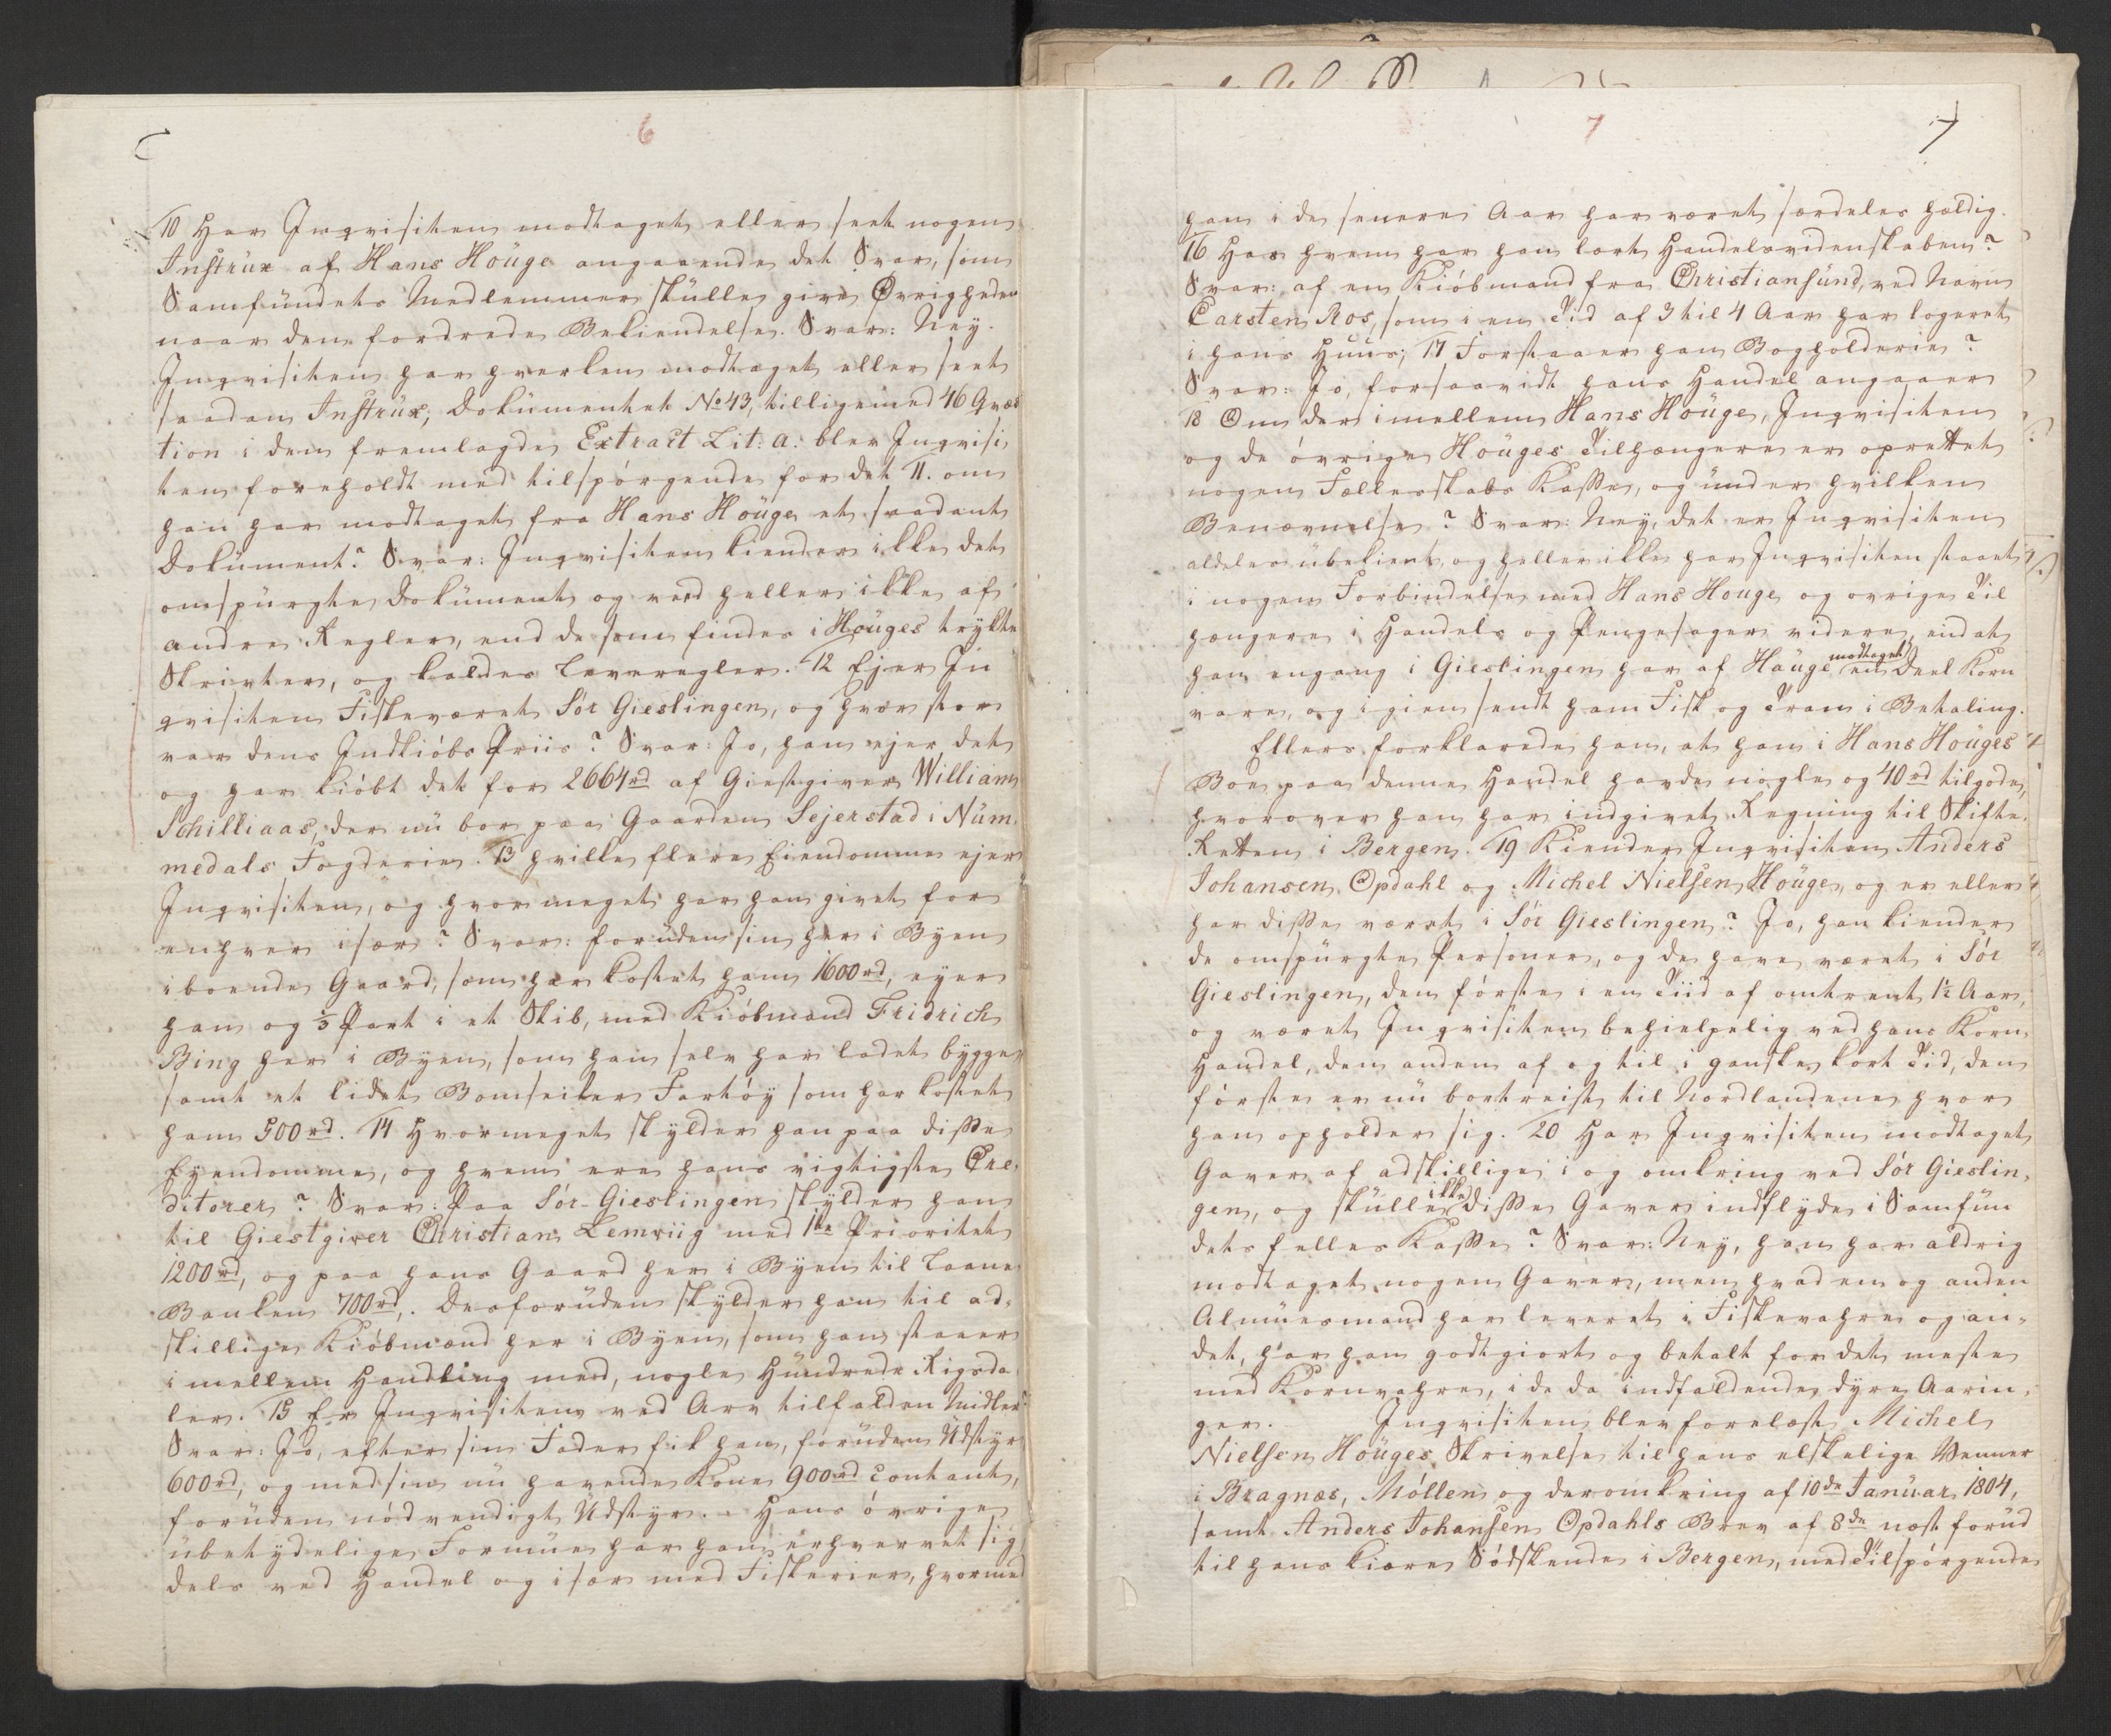 6
10 Har Inqvisiten modtaget eller seet nogen
Instrux af Hans Houge angaaende det Svar, som
Samfundets Medlemmer skulle give Øvrigheden
naar den fordrede Bekiendelse. Svar: Ney.
Inqvisiten har hverken modtaget eller seet
saadan Instrux; Dokumentet No 43, tilligemed 46 Qvæs
tion i den fremlagde Extract Lit: a. blev Inqvisi,
ten foreholdt med tilspórgende for det 11. om
han har modtaget fra Hans Houge et saadant
Dokument? Svar: Inqvisiten kiender ikke det
omspurgte Dokument og veed heller ikke af
andre Regler, end de som findes i Houges trykte
Skrivter, og kaldes Leveregler. 12 Ejer In
qvisiten Fiskeværet Sór Gieslingen, og hvor stor
var dens Indkióbs Priis? Svar: Jo, han ejer det
og har kióbt det for 2664 rd af Giestgiver William
Schilliaas, der nu bor paa Gaarden Sejerstad i Num,
medals Fogderie. 13 hvilke flere Eiendomme ejer
Inqvisiten, og hvor meget har han givet for
enhver især? Svar: foruden sin her i Byen
iboende Gaard, som har kostet ham 1600 rd, eyer
han og 1/3 Part i et Skib, med Kióbmand Fridrich
Bing her i Byen, som han selv har ladet bygge,
samt et lidet Bomseiler Fartóy som har kostet
ham 500 rd. 14 Hvormeget skylder han paa disse
Eyendomme, og hvem ere hans vigtigste Cre,
ditorer? Svar: Paa Sór-Gieslingen skylder han
til Giestgiver Christian Lemviig med 1te Prioritet
1200 rd, og paa hans Gaard her i Byen til Laane
Banken 700 rd,. Desforuden skylder han til ad,
skillige Kióbmænd her i Byen, som han staaer
i mellem Handling med, nogle Hundrede Rigsda
ler. 15 Er Inqvisiten ved Arv tilfalden Midler?
Svar: Jo, efter sin Fader fik han, foruden Udstyr
600 rd, og med sin nu havende Kone 900 rd contant,
foruden nódvendigt Udstyr. Hans óvrige
ubetydelige Formue har han erhvervet sig
dels ved Handel og især med Fiskerier, hvormed
7
7
han i de senere Aar har været særdeles heldig.
16 Hos hvem har han lært Handelsvidenskaben?
Svar: af en Kióbmand fra Christiansund, ved Navn
Carsten Ros, som i en Tid af 3 til 4 Aar har logeret
i hans Huus; 17 Forstaaer han Bogholderie?
Svar: Jo, forsaavidt hans Handel angaaer
18 Om der imellem Hans Houge, Inqvisiten
og de óvrige Houges Tilhængere er oprettet
nogen Fællesskabs Kasse, og under hvilken
Benævnelse? Svar: Ney, det er Inqvisiten
aldeles ubekient, og heller ikke har Inqvisiten staaet
i nogen Forbindelse med Hans Houge og ovrige Til
hængere i Handels og Pengesager videre, end at
han engang i Gieslingen har af Hauge modtaget en Deel Korn
vare, og igien sendt ham Fisk og Tran i Betaling.
Ellers forklarede han, at han i Hans Houges
Boe paa denne Handel havde nogle og 40 rd tilgode,
hvorover han har indgivet Regning til Skifte,
Retten i Bergen. 19 Kiender Inqvisiten Anders
Johansen Opdahl og Michel Nielsen Houge, og er eller
har disse været i Sór Gieslingen? Jo, han kiender
de omspurgte Personer, og de have været i Sór
Gieslingen, den fórste i en Tiid af omtrent 1½ Aar,
og været Inqvisiten behielpelig ved hans Korn,
Handel, den anden af og til i ganske kort Tid, den
fórste er nu bortreist til Nordlandene hvor
han opholder sig. 20 Har Inqvisiten modtaget
Gaver af adskillige i og omkring ved Sór Gieslin,
gen, og skulle ikke disse Gaver indflyde i Samfun
dets felles Kasse? Svar: Ney, han har aldrig
modtaget nogen Gaver, men hvad en og anden
Almuesmand har leveret i Fiskevahre og an,
det, har han godtgiort og betalt for det meste
med Kornvahre, i de da indfaldende dyre Aarin,
ger. Inqvisiten blev forelæst Michel
Nielsen Houges Skrivelse til hans elskelige Venner
i Bragnæs, Móllen og deromkring af 10de Januar 1804,
samt Anders Johansen Opdahls Brev af 8de næst forud
til hans kiære Sódskende i Bergen, med Tilspórgende